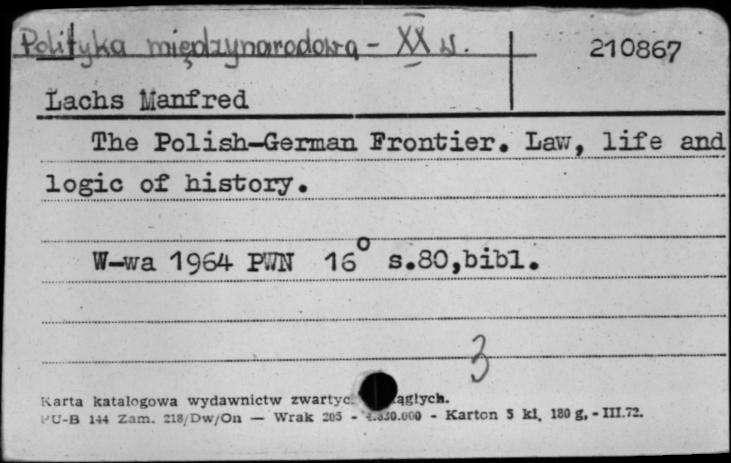 Polityka międzynarodowa - XX w.
210867
Lachs Manfred
The Polish-German Frontier. Law, life and
logic of history.
W-wa 1964 PWN 16° s.80,bibl.
3
Karta katalogowa wydawnictw
PU-B 144 Zam. 218/Dw/On — Wrak 205 - - Karton 5 kl. 180 g. - III.72.